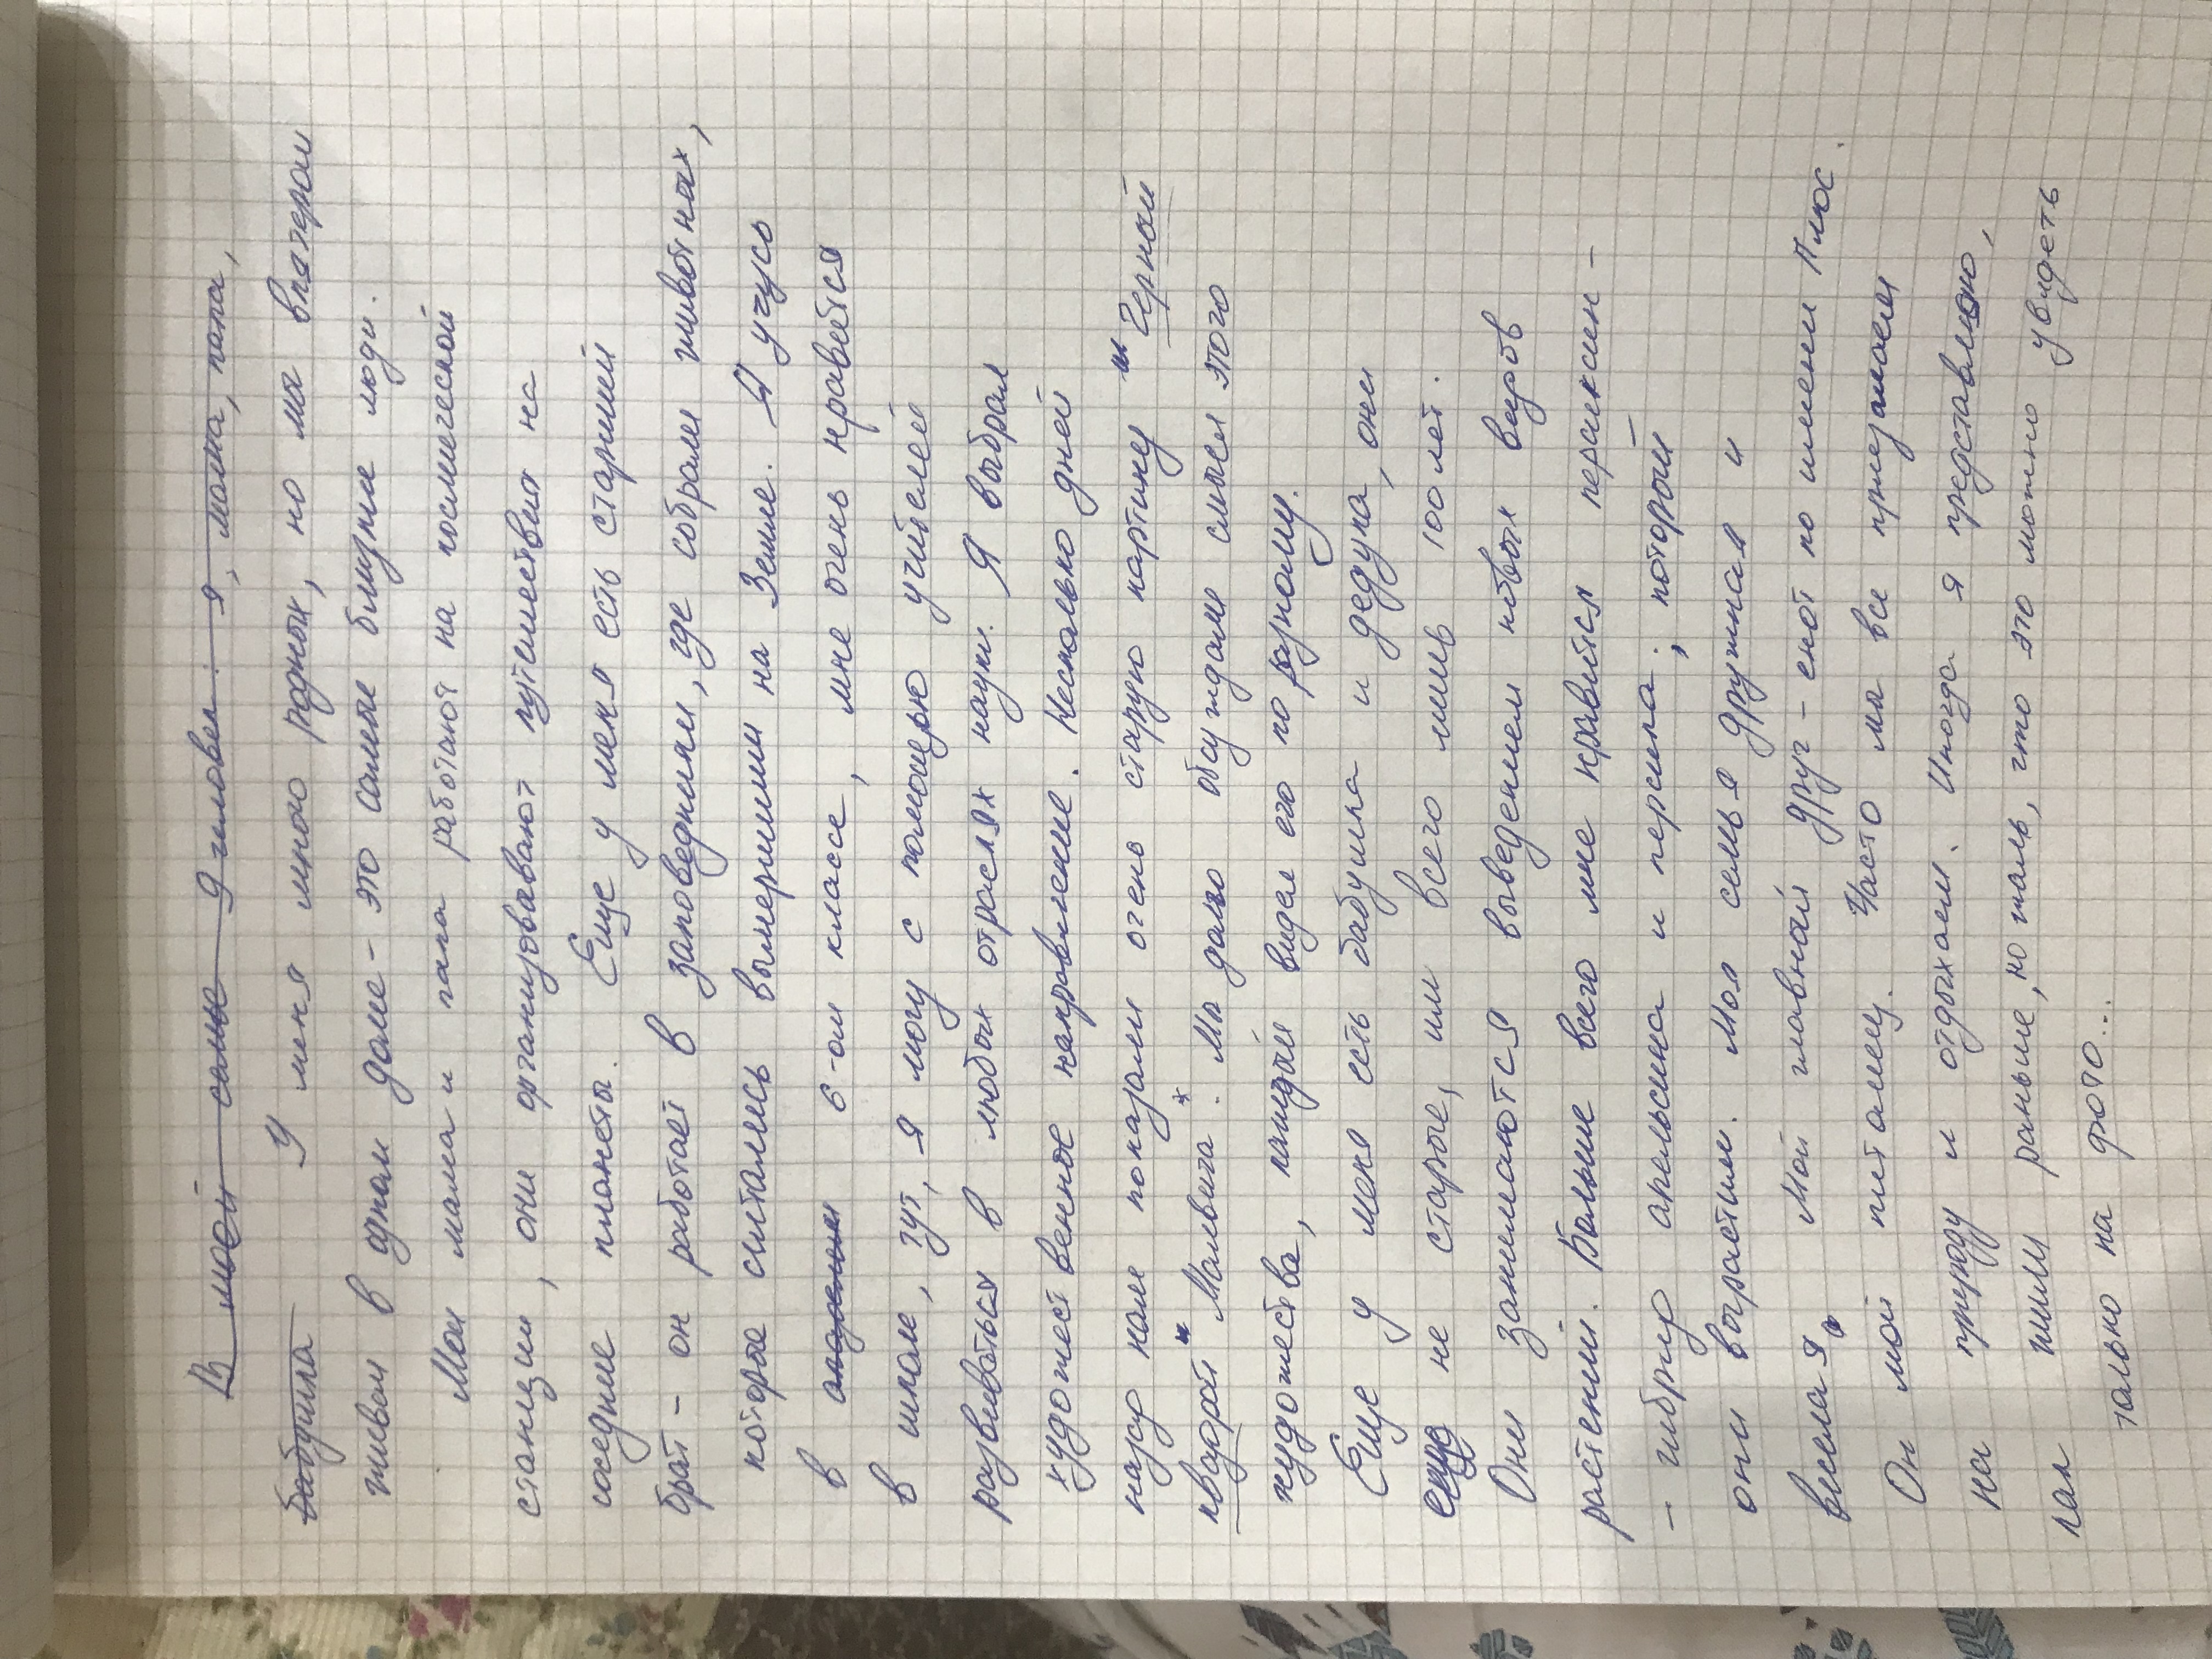 В моей семье 9 человек: я, мама, папа,
бабушка У меня много родных, но мы впятером
живем в одном доме - это самые близкие люди.
Мои мама и папа работают на космической
станции, они организовывают путешествия на
соседние планеты. Еще у меня есть старший
брат - он работает в заповеднии, где собрали животных,
которые считались вымершими на Земле. Я учусь
в 6-ом классе, мне очень нравится
в школе, тут, я могу с помощью учителей
развиваться в любых отраслях науки. Я выбрал
художественное направление. Несколько дней
назад нам показали очень старую картину "Черный
квадрат" Малевича.* Мы долго обсуждали смысл этого
художества, каждый видел его по разному.
Еще у меня есть бабушка и дедушка, они
еще не старые, им всего лишь 100 лет.
Они занимаются выведением новых видов
растений. Больше всего мне нравится персиксин -
- гибрид апельсина и персика, который
они вырастили. Моя семья дружная и
веселая. Мой главный друг - енот по имени Плюс.
Он мой питомец. Часто мы все приезжаем
на природу и отдыхаем. Иногда я представляю,
как жили раньше, но жаль, что это можно увидеть
только на фото...